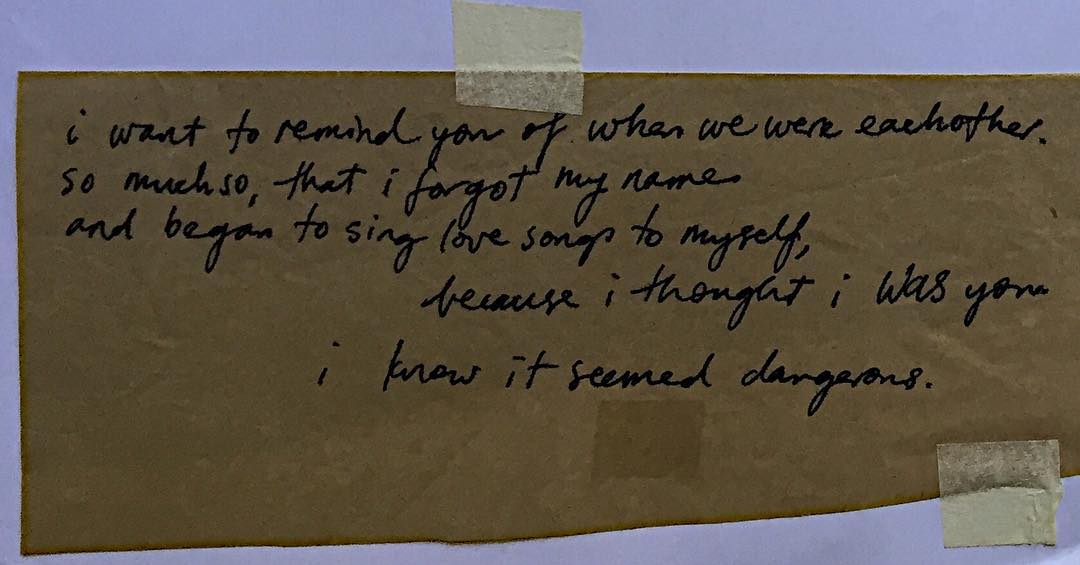 i want to remind you of when we were eachother.
so much so, that i forgot my name
and began to sing love songs to myself,
because i thought i was you
i knew it seemed dangerous.